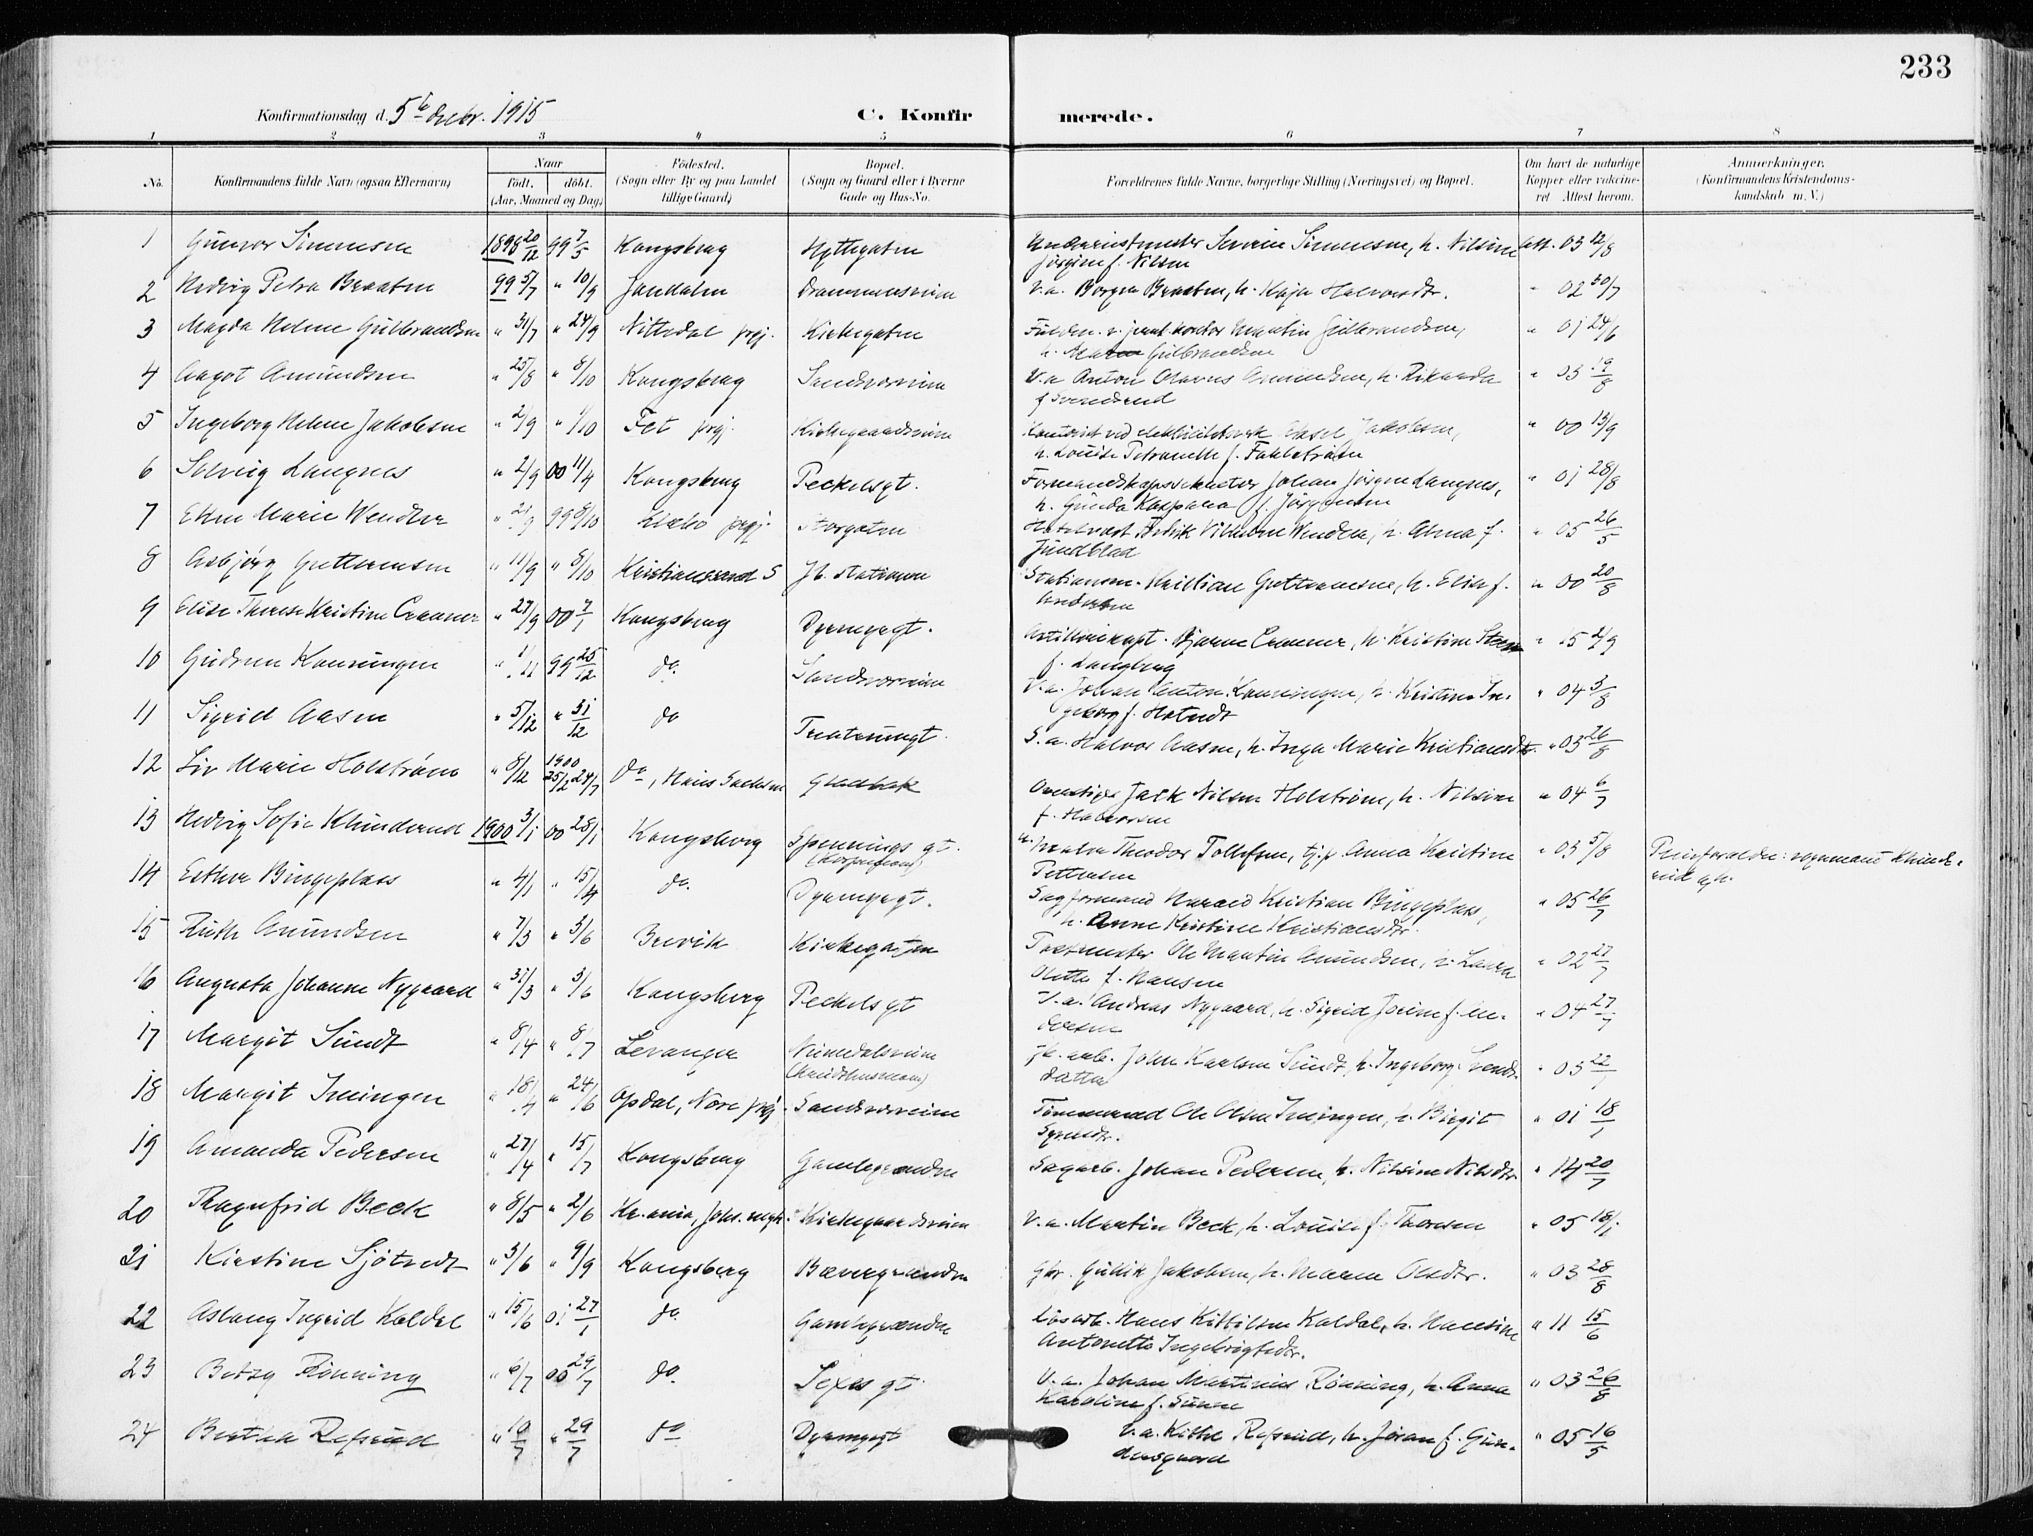 233
Konfirmationsdag d. 5te decbr. 1915
C. Konfirmerede.
1 2 3 4 5 6 7 8
No.
Konfirmandens fulde Navn (ogsaa Efternavn)
Naar
født. døbt.
(Aar, Maaned og Dag)
Födested.
(Sogn eller By og paa Landet
tillige Gaard)
Bopæl.
(Sogn og Gaard eller i Byerne
Gade og Hus-No.
Forældrenes fulde Navne, borgerlige Stilling (Næringsvei) og Bopæl.
Om havt de naturlige
Kopper eller vakcine-
ret Attest herom.
Anmærkninger.
(Konfirmandens Kristendoms-
kundskab m. V.)
1 Gunvor Simensen 1898 20/12 99 7/5 Kongsberg Hyttegaten Severin Simensen, h. Nilsine att. 03 12/8
Jörgine f. Nilsen
2 Hedvig Petra Braaten 99 5/7 " 10/9 Jondalen Drammensveien V.a. Borger Braaten, h. Kaja Halvorsdtr. " 02 30/7
3 Magda Helene Gulbrandsen " 31/7 " 24/9 Nittedal prgj. Kirkegaten Martin Gulbrandsen, " 01 24/6
h. Maren Gulbrandsen
4 Aagot Amundsen " 25/8 " 8/10 Kongsberg Sandsværveien V.a Anton Olavus Amundsen, h. Rikarda " 03 19/8
f Svendsrud
5 Ingeborg Helene Jakobsen " 2/9 " 1/10 Fet prgj. Kirkegaardsveien Jakobsen, " 00 13/9
h. Louise Petronelle f. Fahlström
6 Solveig Langnes " 2/9 00 11/4 Kongsberg Peckelsgt. Formandskapssekretær Johan Jörgen Langnes, " 01 28/8
h. Gunda Kaspara f. Jörgensen
7 Ellen Marie Wendler " 21/9 99 8/10 prgj. Storgaten Hotelvært Fredrik Vilhelm Wendler, h. Alma f. " 05 26/5
Lundblad
8 Asbjörg Guttormsen " 11/9 " 8/10 Kristianssand S Jb. stationen Stationsm. Kristian Guttormsen, h. Elise f. " 00 20/8
Andersen
9 Elise Therese Kristine Cranner " 27/9 00 7/1 Kongsberg Dyrmyrgt. Artillerikapt. Bjarne Cranner, h. Kristine " 15 2/9
f. Langberg
10 Gudrun Konningen " 1/11 99 25/12 do. Sandsværveien V.a. Johan Anton Konningen, h. Kristine In- " 04 3/8
geborg f. Hotvedt
11 Sigrid Aasen " 5/12 " 31/12 do Tråteungt. S.a. Halvor Aasen, h. Inga Marie Kristiansdtr. " 03 26/8
12 Liv Marie Holström " 8/12 1900 25/2 24/7 do, Hans Sachsen Gladbak Opsatsiger Jack Nilsen Holström, h. Nilsine " 04 6/7
f. Halvorsen
13 Hedvig Sofie Klunderud 1900 3/1 00 28/1 Kongsberg Spennings gt. Theodor Tollefsen, tj.p. Anna Kristine " 03 5/8 Pleieforældre: vognmand Klunde-
Pettersen rud og h.
14 Esther Bingeplass " 4/1 " 15/4 do. Dyrmyrgt. Sagformand Harald Kristian Bingeplass, " 05 26/7
h. Anne Kristine Kristiansdtr.
15 Ruth Amundsen " 7/3 " 3/6 Brevik Kirkegaten Postmester Ole Martin Amundsen, h. Laura " 02 27/7
Olette f. Hansen
16 Augusta Johanne Nygaard " 31/3 " 3/6 Kongsberg Peckels gt V.a. Andreas Nygaard, h. Sigrid Josine f. An- " 04 27/7
dersen
17 Margit Sundt " 8/4 " 8/7 Levanger Numedalsveien Jb. arb. John Karlsen Sundt, h. Ingeborg Svends- " 03 22/1
datter
18 Margit Imingen " 18/4 " 24/6 Opdal, Nore prgj. Sandsværveien Tömmermd Ole Olsen Imingen, h. Birgit " 01 18/1
19 Amanda Pedersen " 27/4 " 15/7 Kongsberg Gamlegrænden Sagarb. Johan Pedersen, h. Nilsine Nilsdtr. " 14 20/7
20 Ragnfrid Beck " 8/5 " 2/6 Kr.ania, Joh. mgh. Kirkegaardsveien V.a. Martin Beck, h. Louise f. Thoresen " 05 18/1
21 Kirstine Sjötvedt " 3/6 " 9/9 Kongsberg Bævergrænden Gbr. Gullik Jakobsen, h. Maren Olsdtr. " 03 28/8
22 Aslaug Ingrid Koldal " 15/6 01 27/1 do. Gamlegrænden Lösarb. Hans Kittilsen Koldal, h. Hansine " 11 15/6
Antonette Ingebrigtsdtr.
23 Betzy Rönning " 6/7 00 29/7 do. Sexes gt. V.a. Johan Martinius Rönning, h. Anna " 03 26/8
Karoline f. Simen
24 Borthea Refsrud " 10/7 " 29/7 do Dyrmyrgt V.a. Kittel Refsrud, h. Jöran f. Gun-
" 05 16/5
densgaard